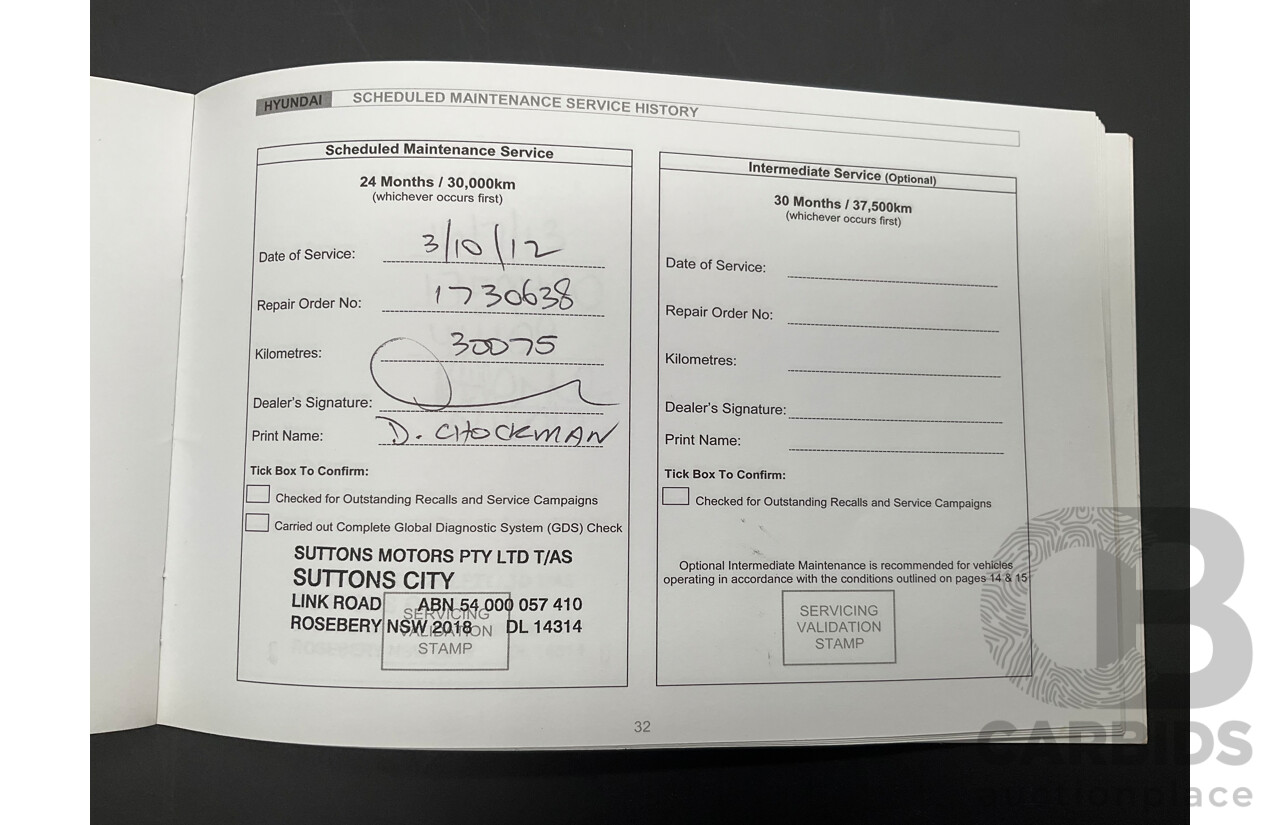 HYUNDAI SCHEDULED MAINTENANCE SERVICE HISTORY
Scheduled Maintenance Service
24 Months / 30,000km
(whichever occurs first)
Date of Service: 3/10/12
Repair Order No: 1730638
Kilometres: 30075
Dealer's Signature:
Print Name: D. CHOCKMAN
Tick Box To Confirm:
Checked for Outstanding Recalls and Service Campaigns
Carried out Complete Global Diagnostic System (GDS) Check
SUTTONS MOTORS PTY LTD T/AS
SUTTONS CITY
LINK ROAD ABN 54 000 057 410
ROSEBERY NSW 2018 DL 14314
SERVICING
VALIDATION
STAMP
Intermediate Service (Optional)
30 Months / 37,500km
(whichever occurs first)
Date of Service:
Repair Order No:
Kilometres:
Dealer's Signature:
Print Name:
Tick Box To Confirm:
Checked for Outstanding Recalls and Service Campaigns
Optional Intermediate Maintenance is recommended for vehicles
operating in accordance with the conditions outlined on pages 14 & 15
SERVICING
VALIDATION
STAMP
32
CARBIDS
auctionplace